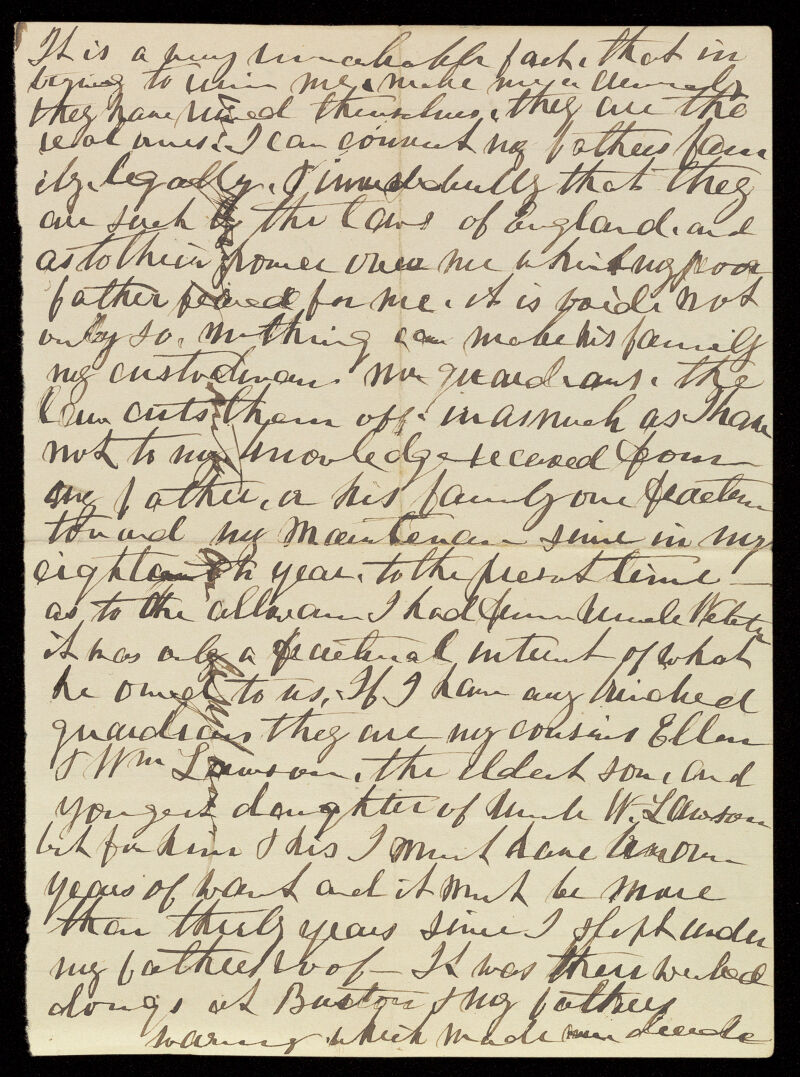 It is a very remarkable fact, that in
trying to ruin me, & make me a
they have ruined themselves, they are the
real ones. I can convict my fathers fam
ily, legally, & that they
are such by the laws of England. and
as to their power over me which my poor
father for me, it is void. not
only so, nothing can make his family
my custodians nor guardians. the
law cuts them off. in as much as I have
not to my knowledge received from
my father, or his family one fraction
toward my maintenance since in my
eighteenth year, to the present time —
as to the allowance I had from Uncle
it was only a fractional interest of what
he owed to us. If I have any
guardians they are my cousins Ellen
& Wm Lawson, the eldest son, and
youngest daughter of Uncle W. Lawson
but for him & his I must have known
years of want and it must be more
than thirty years since I slept under
my fathers roof — It was their wicked
doings at Buxton & my fathers
warning which made